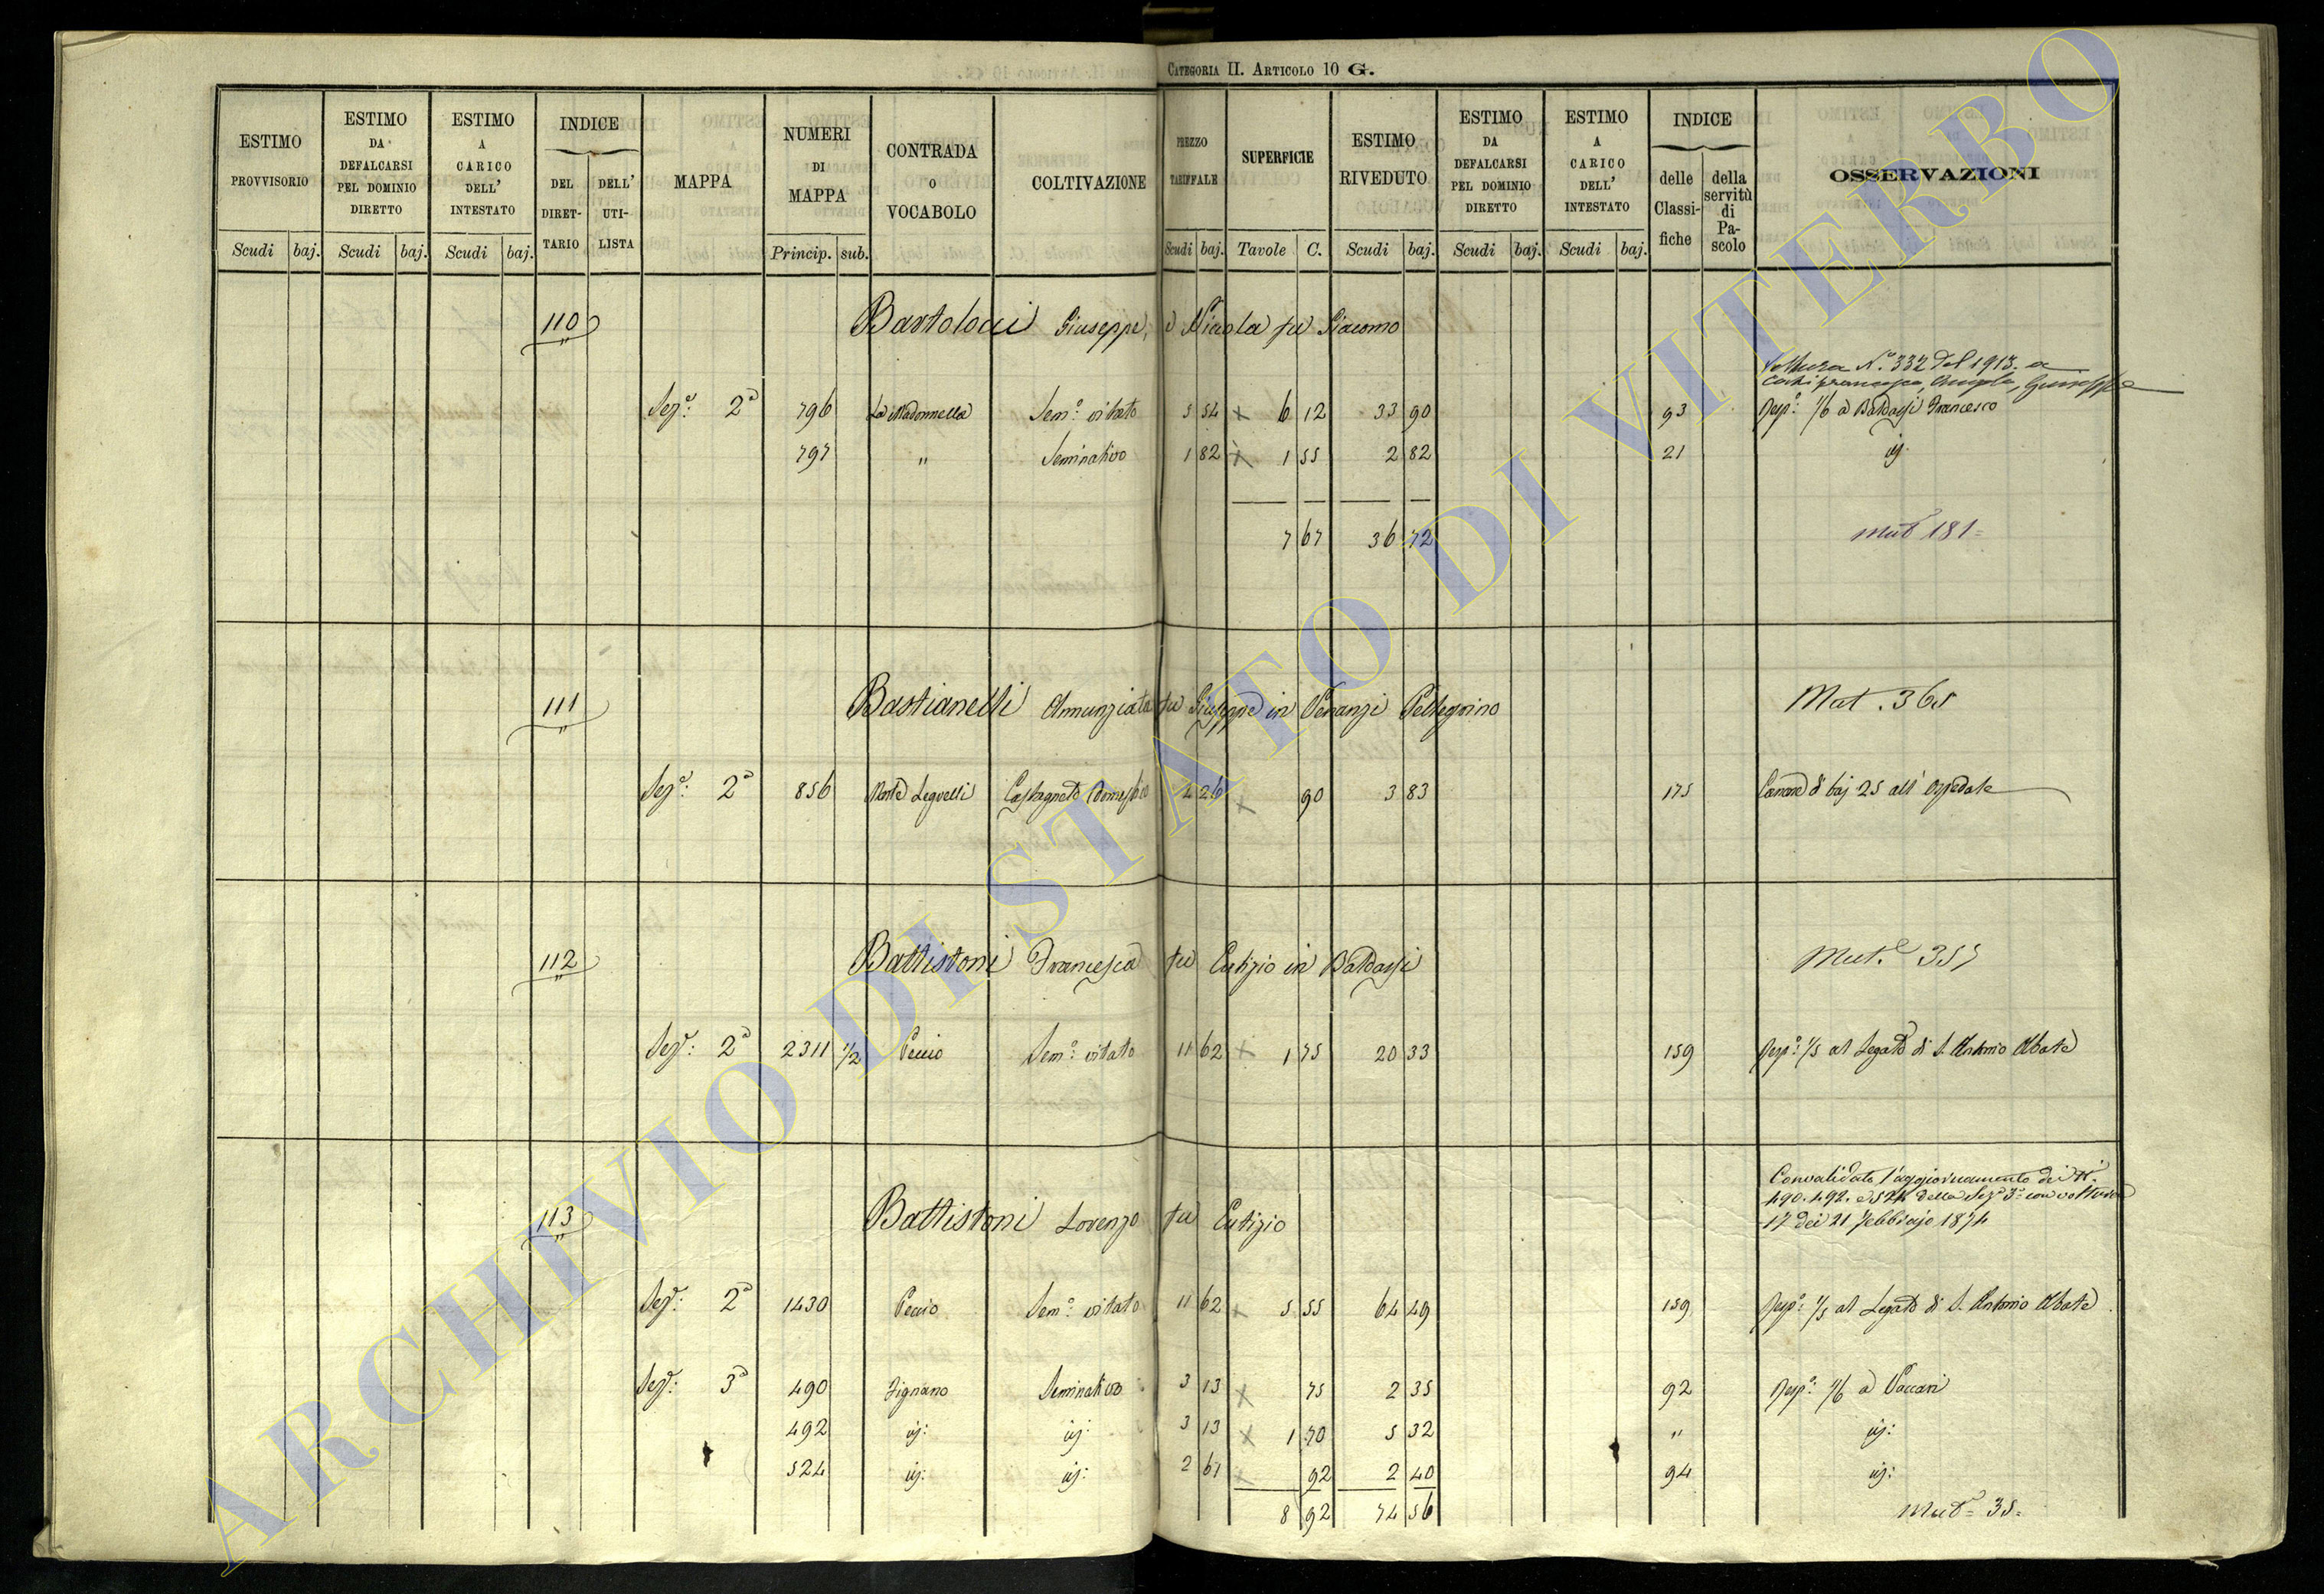 CATEGORIA II. ARTICOLO 10 G.
ESTIMO PROVVISORIO Scudi baj.
ESTIMO DA DEFALCARSI PEL DOMINIO DIRETTO Scudi baj.
ESTIMO A CARICO DELL' INTESTATO Scudi baj.
INDICE DEL DIRET-TARIO DELL' UTI-LISTA
MAPPA
NUMERI DI MAPPA Princip. sub.
CONTRADA O VOCABOLO
COLTIVAZIONE
PREZZO TARIFFALE Scudi baj.
SUPERFICIE Tavole C.
ESTIMO RIVEDUTO Scudi baj.
ESTIMO DA DEFALCARSI PEL DOMINIO DIRETTO Scudi baj.
ESTIMO A CARICO DELL' INTESTATO Scudi baj.
INDICE delle Classi-fiche della servitù di Pa-scolo
OSSERVAZIONI
110 Bartolocci Giuseppe, e Nicola fu Giacomo
Voltura N.° 332 del 1913. a
Francesco, Angela, Giuseppe
Sez.e: 2a 796 La Madonnella Sem.o vitato 5 54 x 6 12 33 90 93 Resp.e 1/6 a Baldassi Francesco
797 " Seminativo 1 82 x 1 55 2 82 21 id.
7 67 36 72 Mut.e 181=
111 Bastianelli Annunziata fu Giuseppe in Venanzi Pellegrino Mat. 365
Sez.e: 2a 856 Monte Castagneto Domestico 4 26 x 90 3 83 175 Canone di baj 25 all' Ospedale
112 Battistoni Francesca fu Eutizio in Baldassi Mut.e 357
Sez.e: 2a 2311 1/2 Peccio Sem.o vitato 11 62 x 1 75 20 33 159 Resp.e 1/5 al Legato di S. Antonio Abate
113 Battistoni Lorenzo fu Eutizio
Convalidato l'aggiornamento dei N.i
490. 492. e 524 della Sez.e 3a con voltura
17 dei 21 Febbrajo 1874
Sez.e: 2a 1430 Peccio Sem.o vitato 11 62 x 5 55 64 49 159 Resp.e 1/5 al Legato di S. Antonio Abate
Sez.e: 3a 490 Fignano Seminativo 3 13 x 75 2 35 92 Resp.e 1/6 a Vaccari
492 id: id: 3 13 x 1 70 5 32 " id:
524 id: id: 2 61 x 92 2 40 94 id:
8 92 74 56 Mut.e= 35=
ARCHIVIO DI STATO DI VITERBO